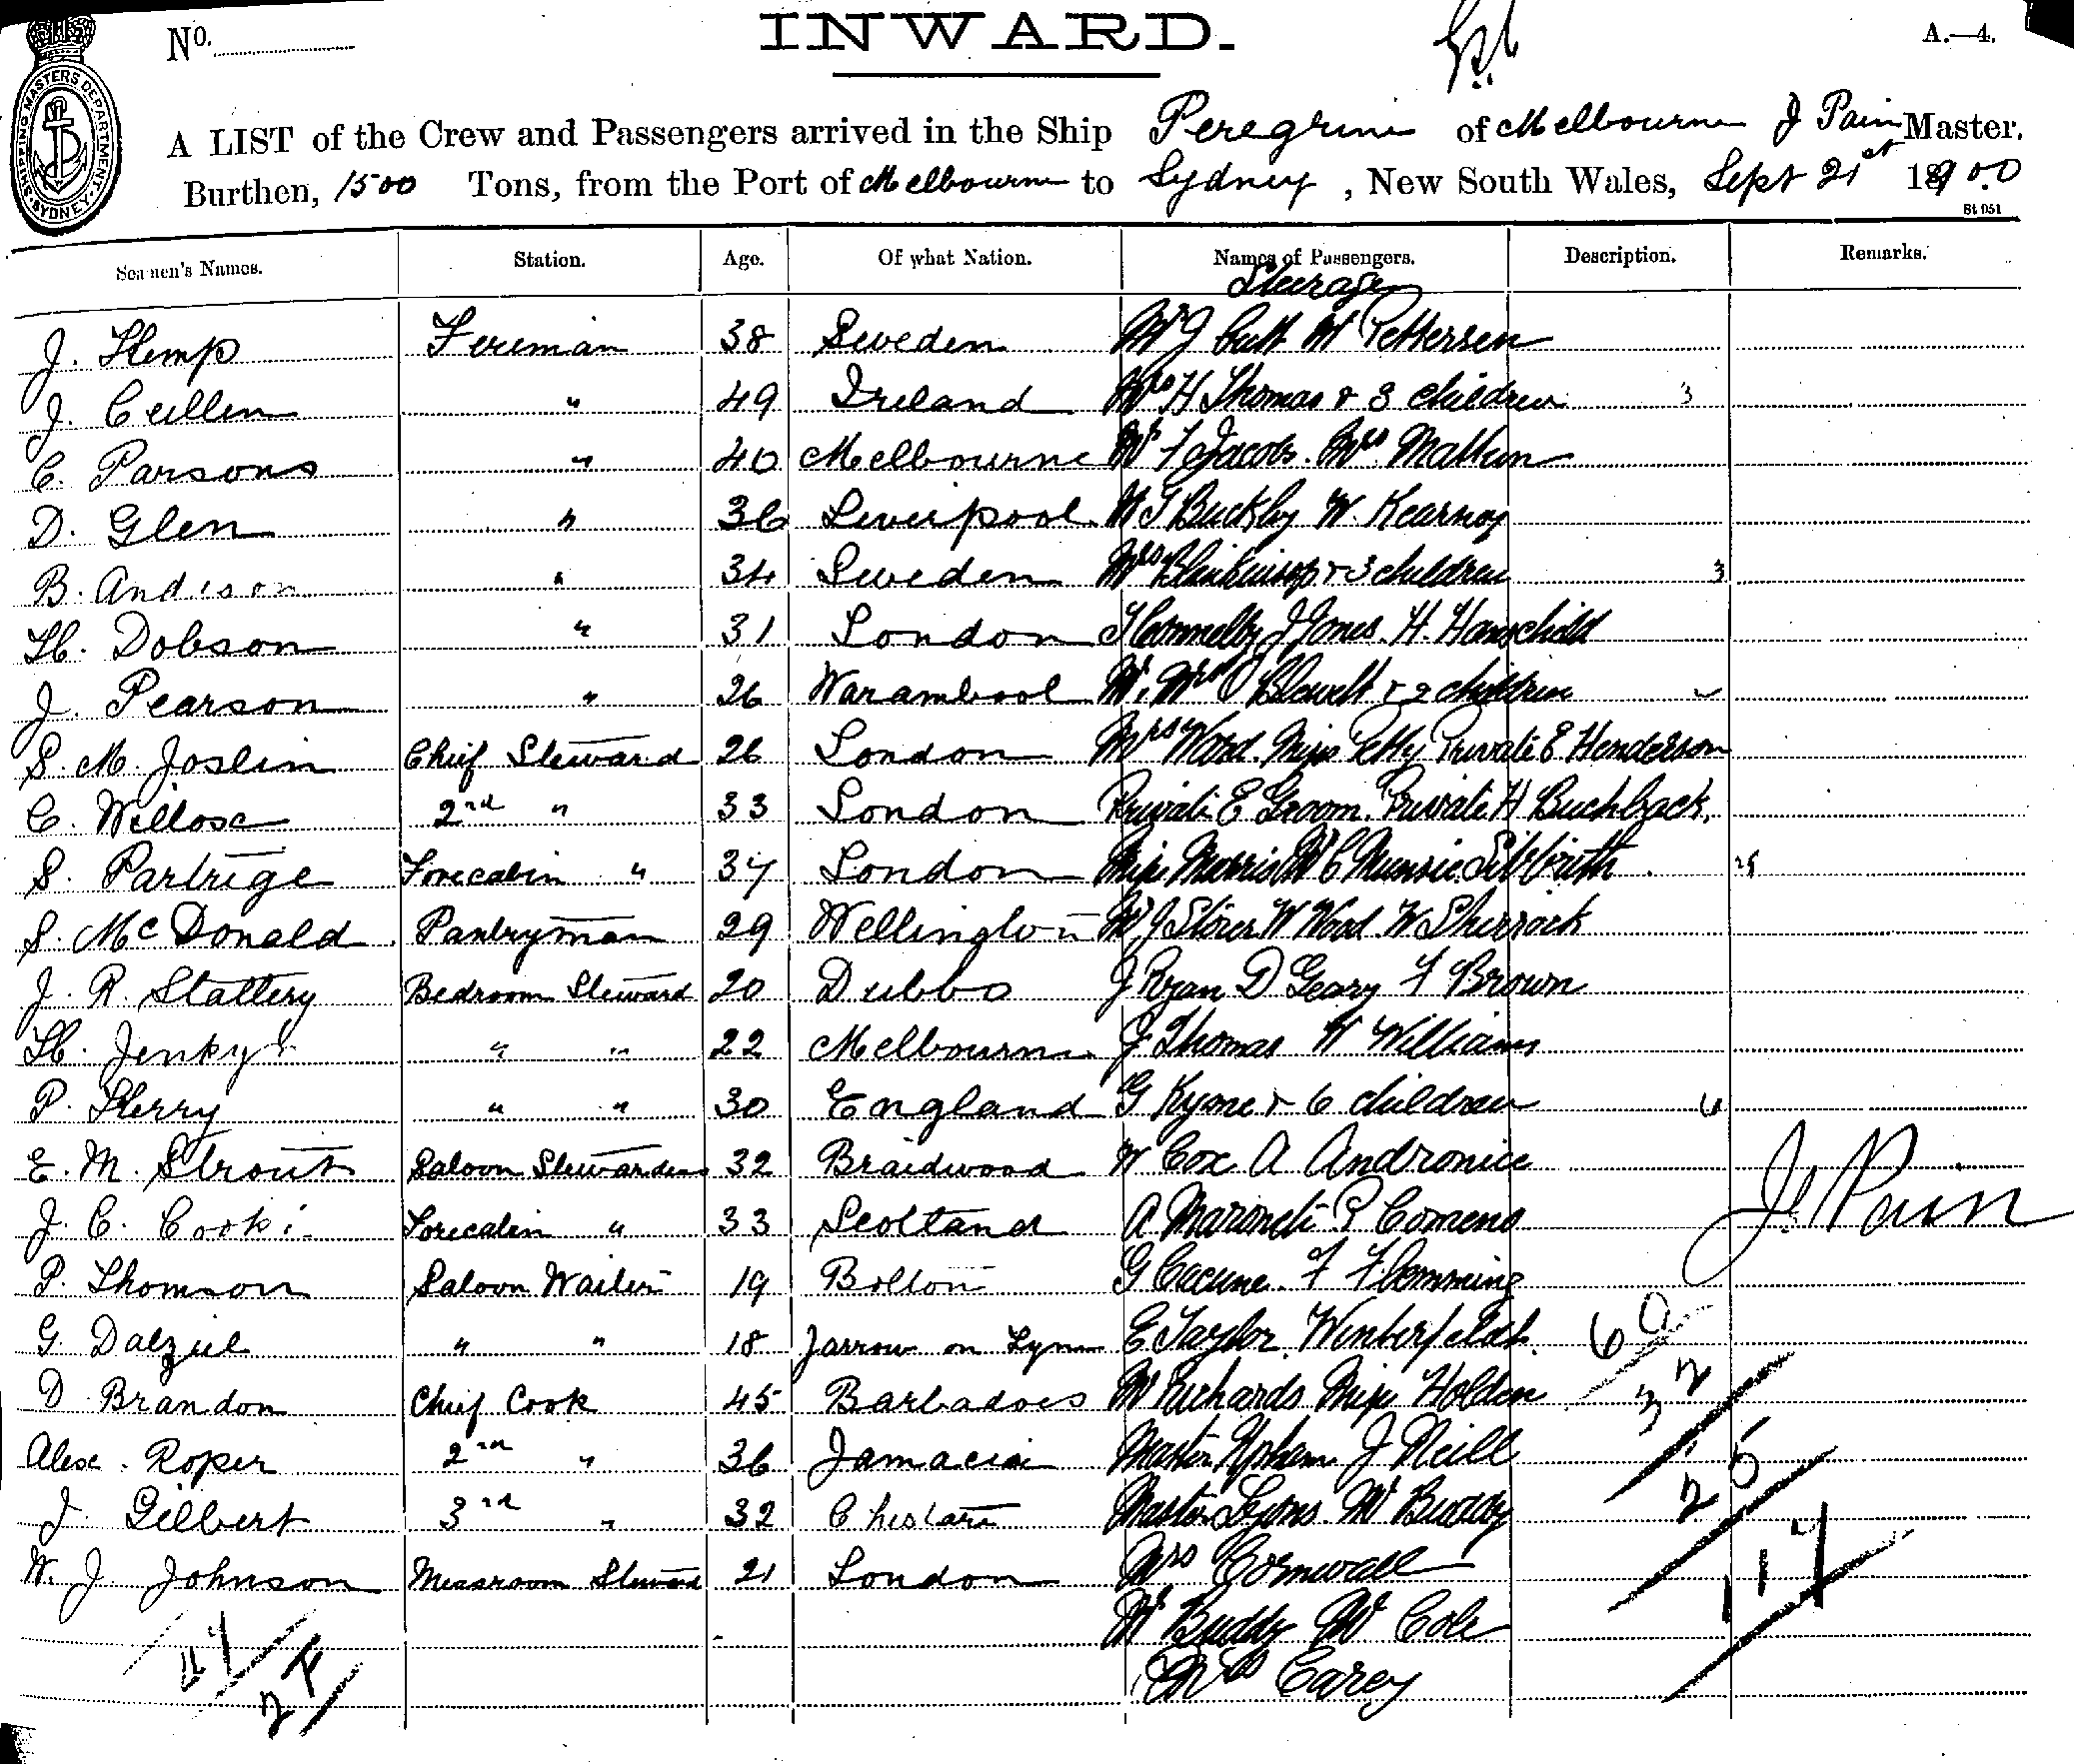 No.
INWARD.
A.—4.
SHIPPING MASTERS DEPARTMENT SYDNEY
A LIST of the Crew and Passengers arrived in the Ship Peregrine of Melbourne J Pain Master.
Burthen, 1500 Tons, from the Port of Melbourne to Sydney, New South Wales, Sept 21st 1900
St 951
Seamen's Names. Station. Age. Of what Nation. Names of Passengers. Description. Remarks.
Steerage
J. Hemp Fireman 38 Sweden Mr J Cutt Mr Pettersen
J. Cullen " 49 Ireland Mrs H Thomas & 3 children 3
C. Parsons " 40 Melbourne Mr F Jacobs. Mrs
D. Glen " 36 Liverpool Mr T Buckley W. Kearney
B. Anderson " 34 Sweden Mrs Blenkinsop & 3 children 3
H. Dobson " 31 London T Connelly J Jones. H. Hanschild
J. Pearson " 26 Warambool Mr. Mrs Blewett & 2 children
S. M. Joslin Chief Steward 26 London Mrs Wood. Miss Petty Private E Henderson
C. Willose 2nd " 33 London Private E Groom. Private H Buchback.
S. Partrige Forecabin " 37 London Miss Morris Mr C Munsie
S. McDonald Pantryman 29 Wellington Mr J W Wood. W Sherrock
J. R. Stattery Bedroom Steward 20 Dubbo J Ryan D Geary F Brown
H. Jenkyr " " 22 Melbourne J Thomas W Williams
P. Sherry " " 30 England G Kyme & 6 children 6
E. M. Strout Saloon Stewardess 32 Braidwood W Cox A Andronice
J. C. Cook Forecabin " 33 Scotland A Maroneti P Comeno
J. Pain
P. Thomson Saloon Waiter 19 Bolton G Cacune. F Flemming
G. Dalziel " " 18 Jarrow on Tyne E Taylor. Winterfeldt. 60
D Brandon Chief Cook 45 Barbadoes Mr Richards Miss Holden 32
Alex. Roper 2nd " 36 Jamacia Master J Neill
J. Gilbert 3rd " 32 Master Lyons Mr Buddy 25
W. J. Johnson Messroom Steward 21 London Mrs Cornwall 117
Mr Buddy Mr Cole
Mrs Carey